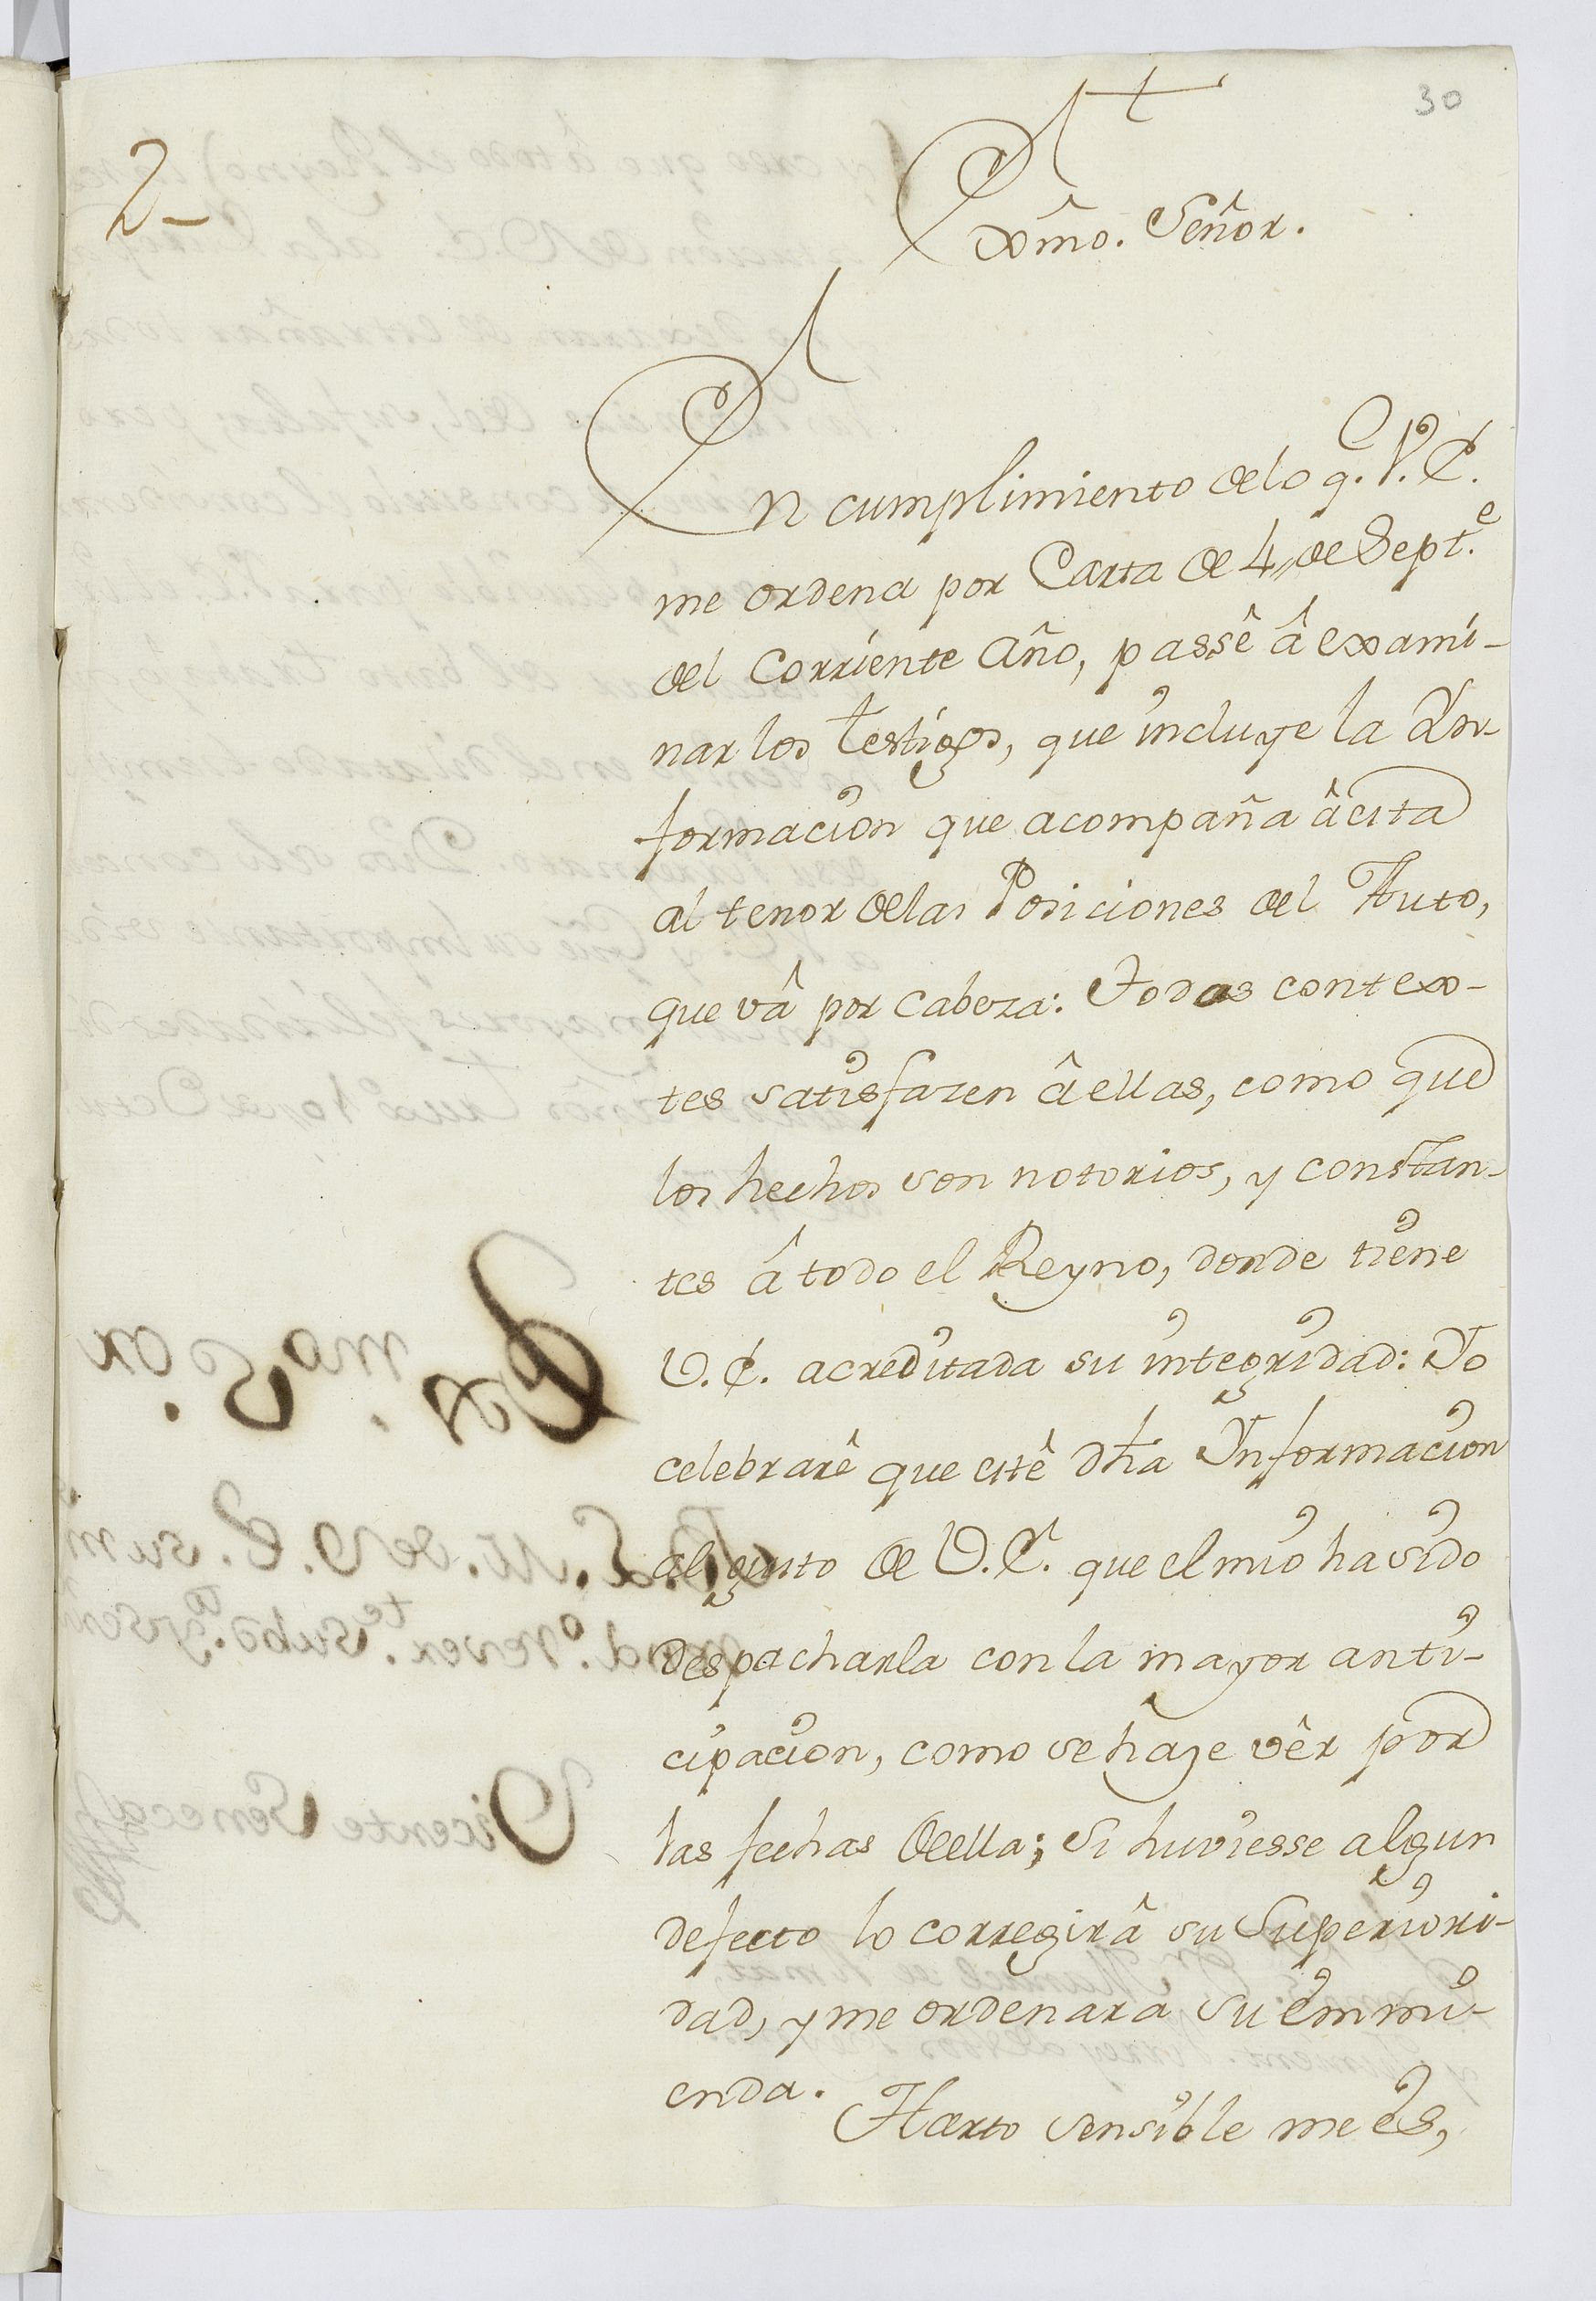 30
2-
Exmô. Señor.
En cumplimiento delo q. V. E.
me ordena por Carta de 4,, de Sept.e
del Corriente Año, passê â exami-
nar los testigos, que incluye la Yn-
formacion que acompaña â esta
al tenor delas Posiciones del Auto,
que vâ por Cabeza: Todas contex-
tes satisfazen â ellas, como que
los hechos son notorios, y constan-
tes â todo el Reyno, donde tiene
V. E. acreditada su integridad: Yo
celebrarê que estê dha Ynformacion
al gusto de V. E. que el mio ha sido
despacharla con la mayor anti-
cipacion, como se haze vêr por
las fechas de ella; Si huviesse algun
defecto lo corregirâ su Superiori-
dad, y me ordenara su emmi-
enda.
Harto sensible me es,